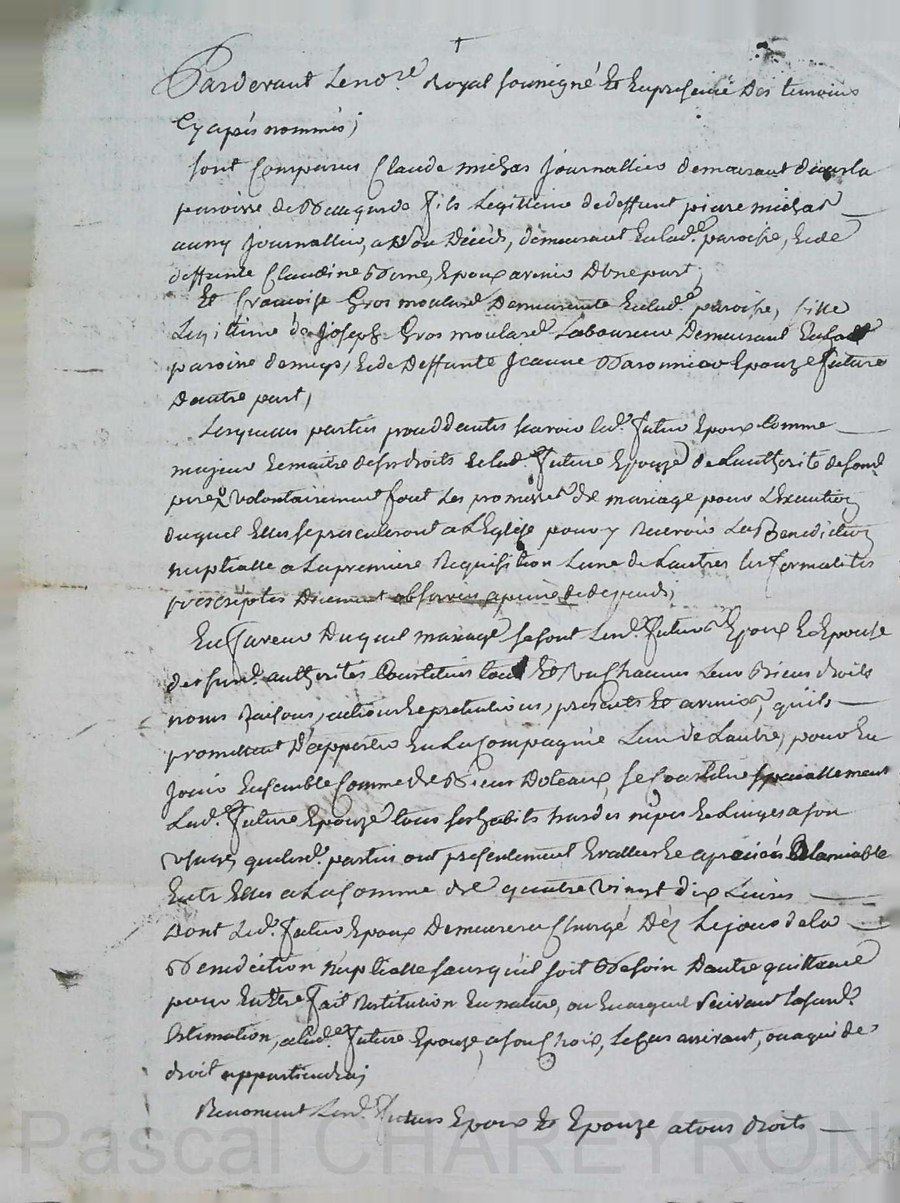 †
Pardevant Le no.re Royal soussigné Et En presence des temoins
Cy après nommés;
Sont Comparus Claude michas Journallier demeurant dans la
paroisse de fils Legittime de deffunt pierre michas
Journallier, demeurant En lad.e paroisse, Et de
deffunte Claudine Epoux avenir D'une part,
Et francoise Gros moulard Demeurante En lad.e paroisse, fille
Legittime de Joseph Gros moulard Laboureur Demeurant En lad
paroisse Et de Deffunte Jeanne Epouze future
D'autre part,
Lesquelles parties proceddantes scavoir led. futur Epoux Comme
majeur Et maitre de ses droits Et lad. future Epouze de L'authorité de sond.
pere, volontairement font Les promesses de mariage pour L'Execution
duquel Elles se presenteront a L'Eglise pour y Recevoir La Benediction
nuptialle a La premiere Requisition L'une de L'autre, les formalités
prescriptes Duement observées a peine de depends;
En faveur Duquel mariage se sont Lesd. futurs Epoux Et Epouse
des susd. authorités Constitués tous Et Un Chacuns Leurs Biens droits
noms Raisons, actions Et pretentions, presents Et avenirs, qu'ils
promettent D'apporter En La Compagnie L'un de L'autre, pour En
Jouir Ensemble Comme de Biens Doteaux, se Constitue specialement
Lad. future Epouze tous ses habits hardes nipes Et Linges a son
Usage, que lesd. parties ont presentement Evallué Et apreciés a L'amiable
Entr'Elles a La somme de quatre vingt dix Livres
Dont Led. futur Epoux Demeurera Chargé Dès Le jour de la
Benediction nuptialle sans qu'il soit Besoin D'autre quittance
pour En Etre fait Restitution En nature, ou En argent suivant la susd.
Estimation, a lad. future Epouze, a son Choix, Le Cas arrivant, ou a qui de
droit appartiendra;
Renoncent Lesd. futurs Epoux Et Epouze a tous droits
Pascal CHAREYRON